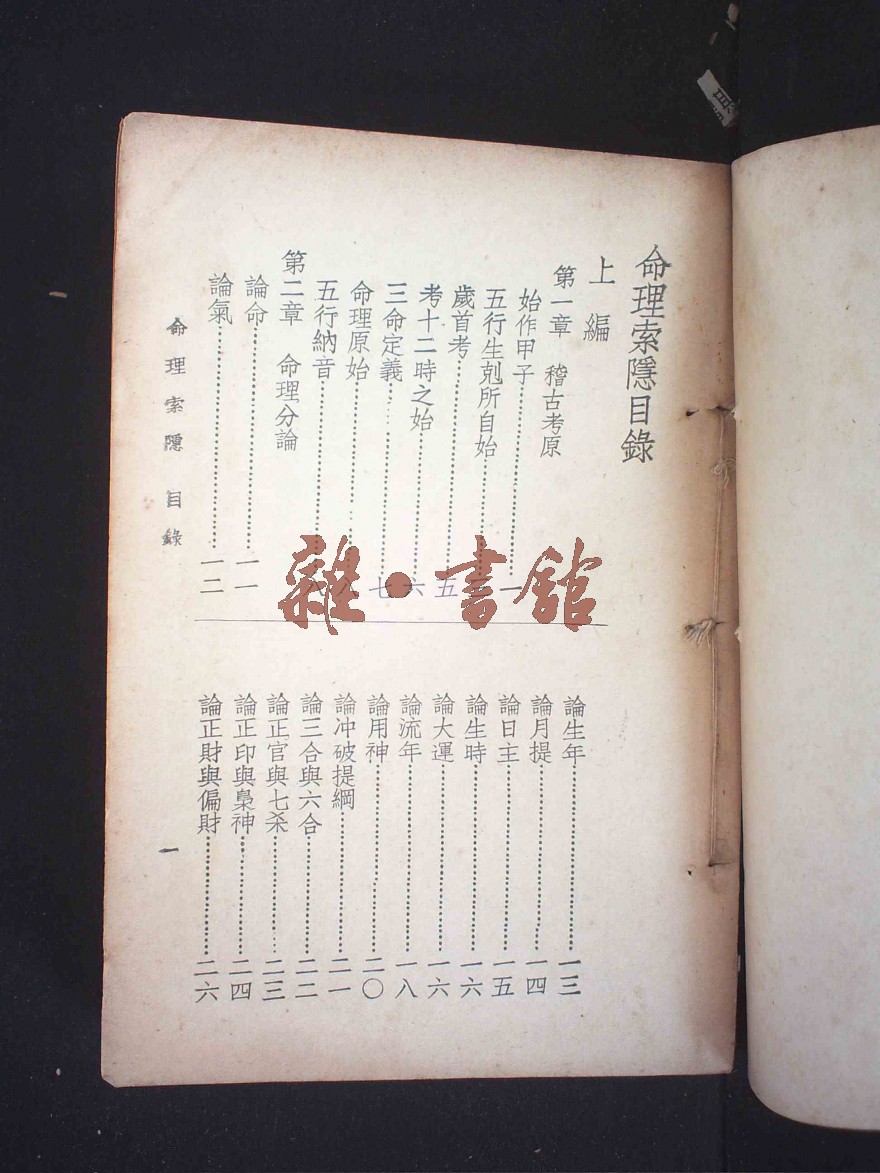 命理索隱目錄
上編
第一章 稽古考原
始作甲子……一
五行生剋所自始……
歲首考……五
考十二時之始……六
三命定義……七
命理原始……八
五行納音……八
第二章 命理分論
論命……一一
論氣……一二
論生年……一三
論月提……一四
論日主……一五
論生時……一六
論大運……一六
論流年……一八
論用神……二〇
論冲破提綱……二一
論三合與六合……二二
論正官與七杀……二三
論正印與梟神……二四
論正財與偏財……二六
命理索隱 目錄
一
雜·書館